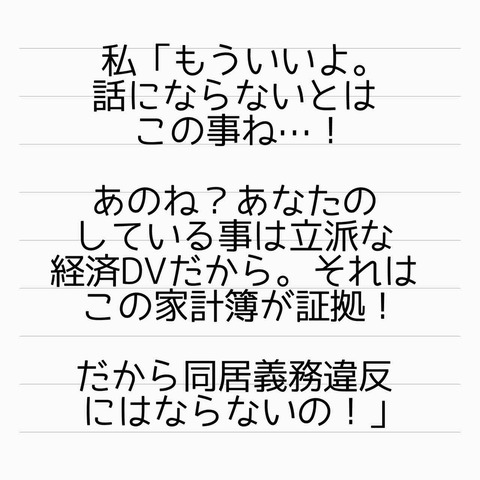 私「もういいよ。
話にならないとは
この事ね…！
あのね？あなたの
している事は立派な
経済DVだから。それは
この家計簿が証拠！
だから同居義務違反
にはならないの！」